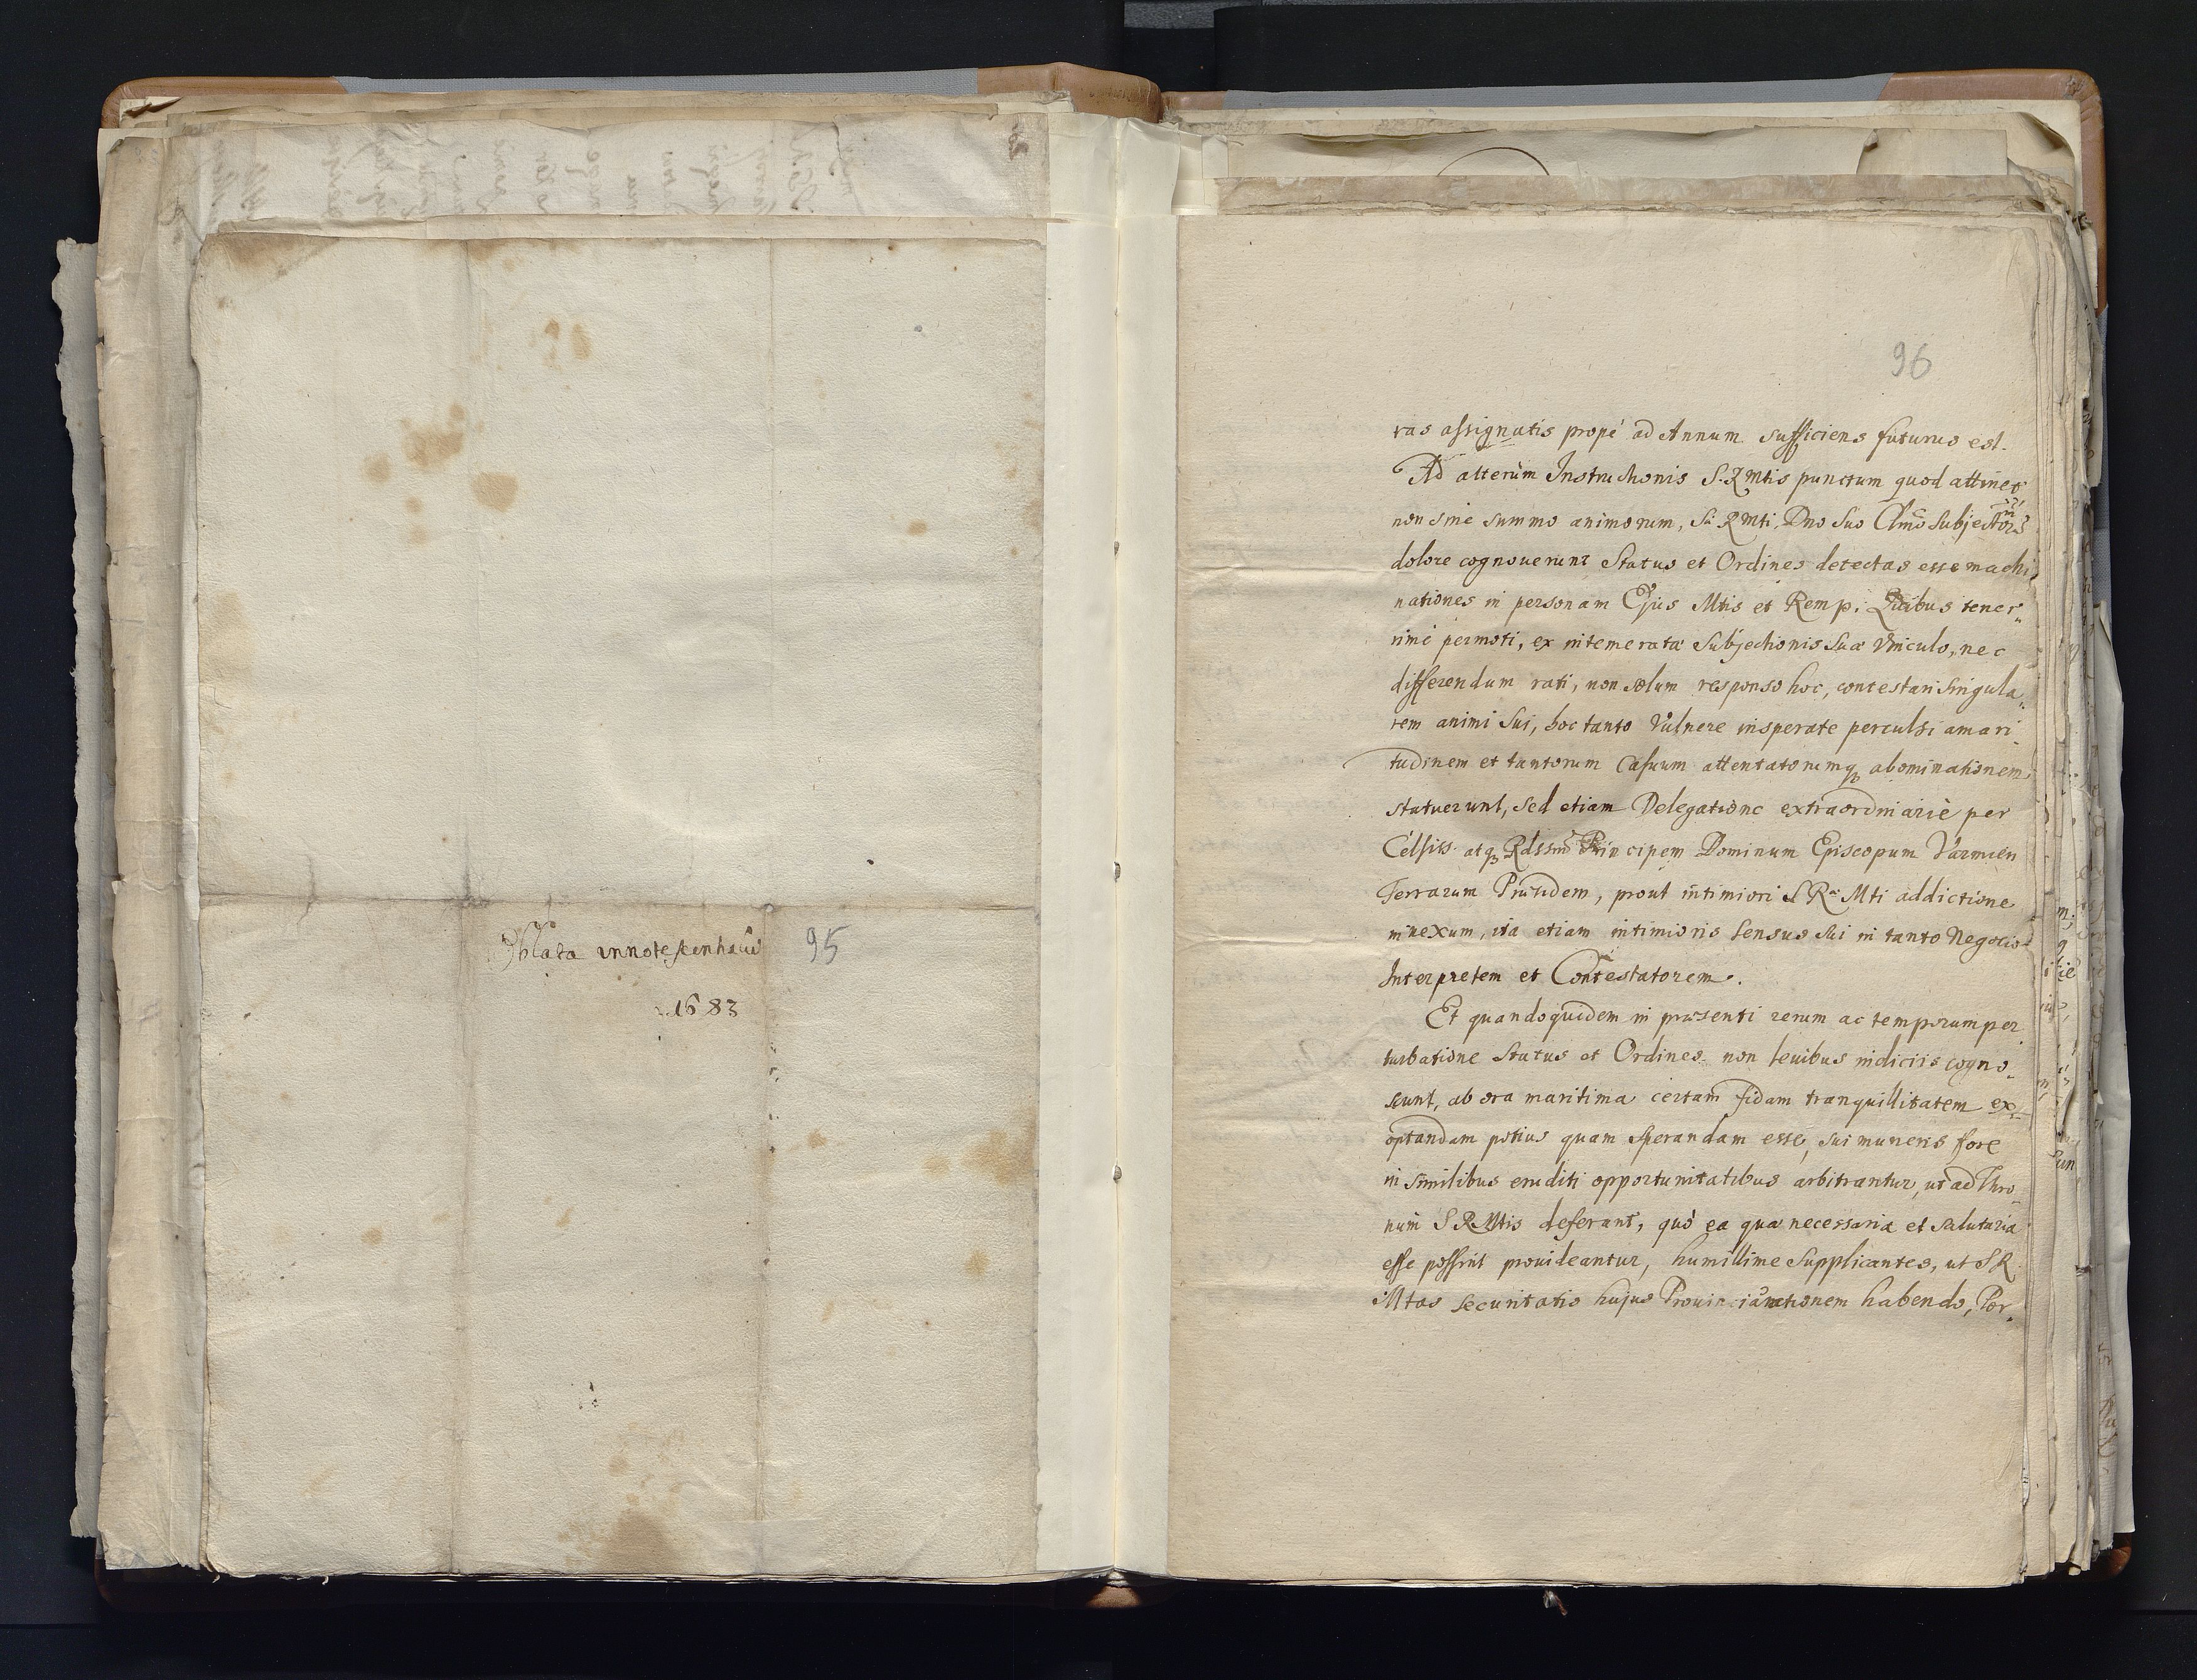 Oblata innotescentiarū
95
1683
96
ras assignatis propè ad Annum sufficiens futurus est.
Ad alterum Instructionis S. R Mtis punctum quod attinet
non sine summo animorum, Sæ R Mti, Dno Suo Clmo Subjectissimor
dolore cognouerunt Status et Ordines detectas esse machi
nationes in personam Ejus Mtis et Remp: Quibus tener„
rimè permoti, ex intemerata Subjectionis Suæ Vinculo, nec
differendum rati, non solum responso hoc, contestari Singula„
rem animi Sui, hoc tanto Vulnere insperate perculsi amari„
tudinem et tantorum Casuum attentatorumq₃ abominationem
statuerunt, Sed etiam Delegatione extraordinariè per
Celsiss. atq₃ Rdssm Principem Dominum Episcopum Varmien
Terrarum Præsidem, prout intimiori S Ræ Mti addictione
innexum, ita etiam intimioris Sensus Sui in tanto Negocio
Interpretem et Contestatorem.
Et quandoquidem in præsenti rerum ac temporum per„
turbatione Status et Ordines non leuibus indiciis cogno„
scunt, ab ora maritima certam fidam tranquillitatem ex„
optandam potius quam Sperandam esse, Sui muneris fore
in Similibus eruditi opportunitatibus arbitrantur, ut ad Thro„
num S R Mtis deferant, quò ea quæ necessaria et Salutaria
esse possint prouideantur, humillime Supplicantes, ut S R
Mtas Securitatis hujus Prouinciæ rationem habendo, Por„